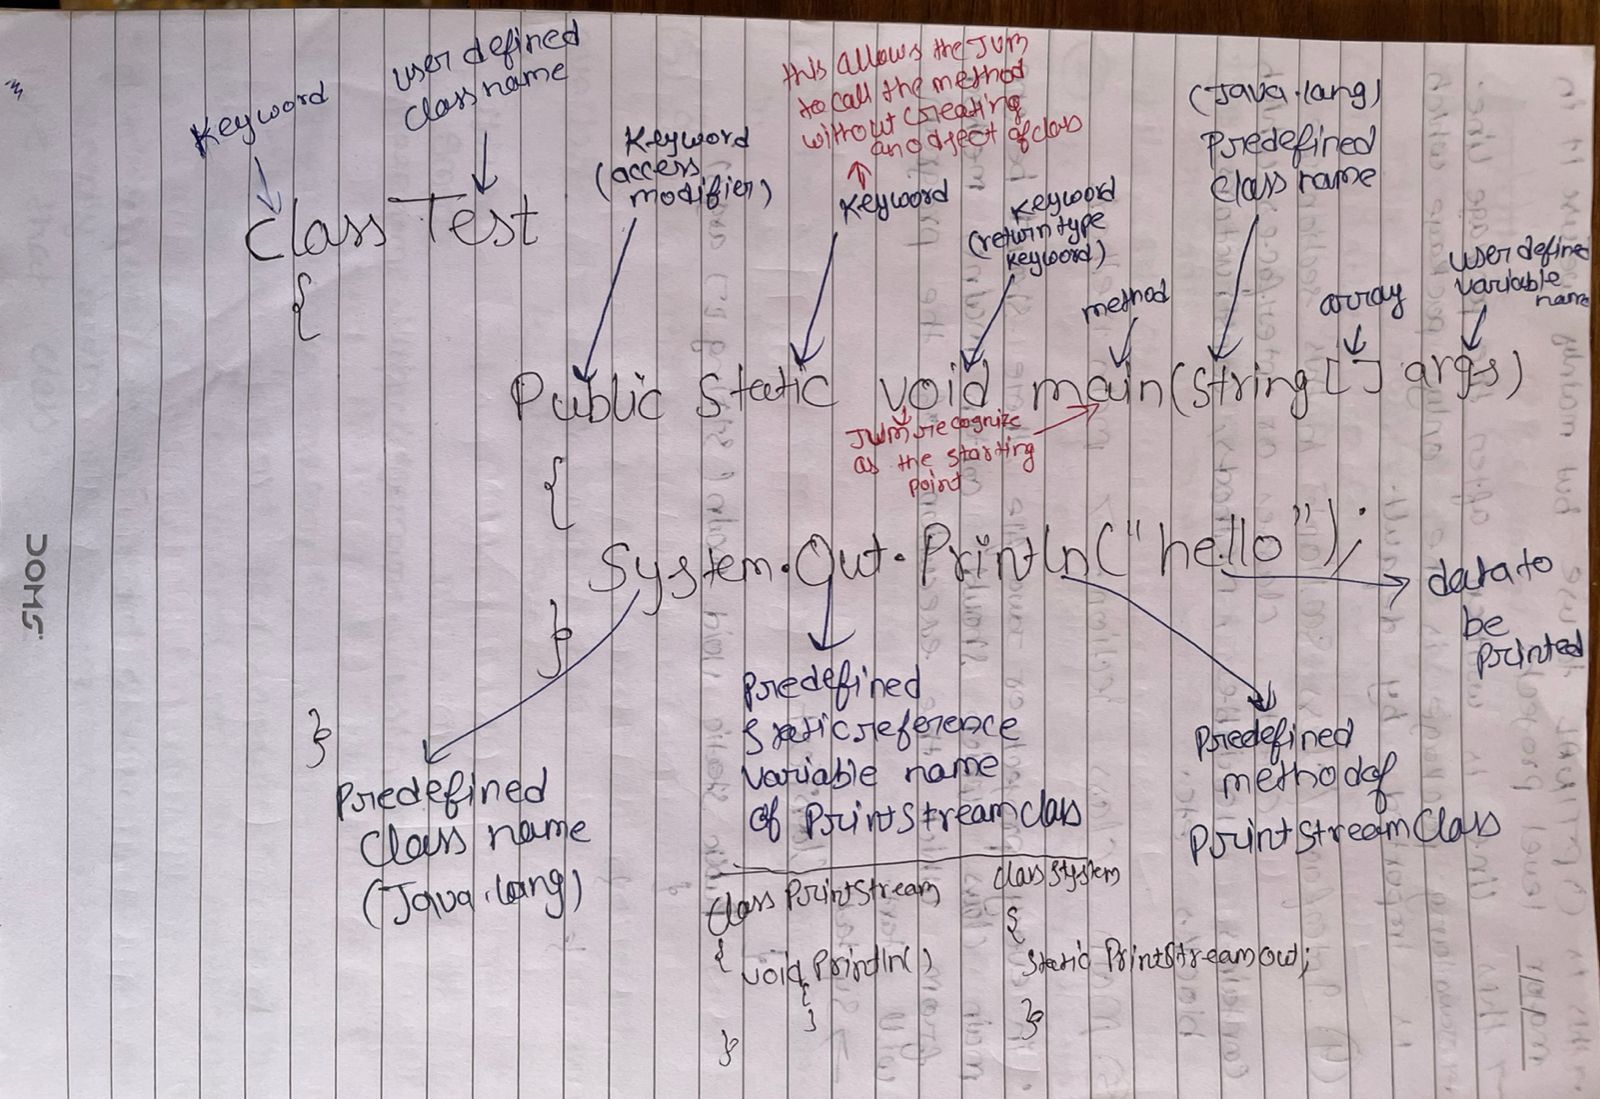 Keyword
user defined
class name
Keyword
(access
modifier)
this allows the JVM
to call the method
without creating
an object of class
Keyword
Keyword
(return type
keyword)
method
(Java.lang)
Predefined
class name
array
user define
variable
name
class Test
{
Public static void main(string[] args)
JVM recognize
as the starting
point
{
System.Out.Println("hello");
}
}
data to
be
printed
Predefined
class name
(Java.lang)
Predefined
static reference
variable name
of PrintStream class
Predefined
method of
PrintStream Class
class PrintStream
{
void Println()
{
}
}
class System
{
static PrintStream out;
}
DOMS